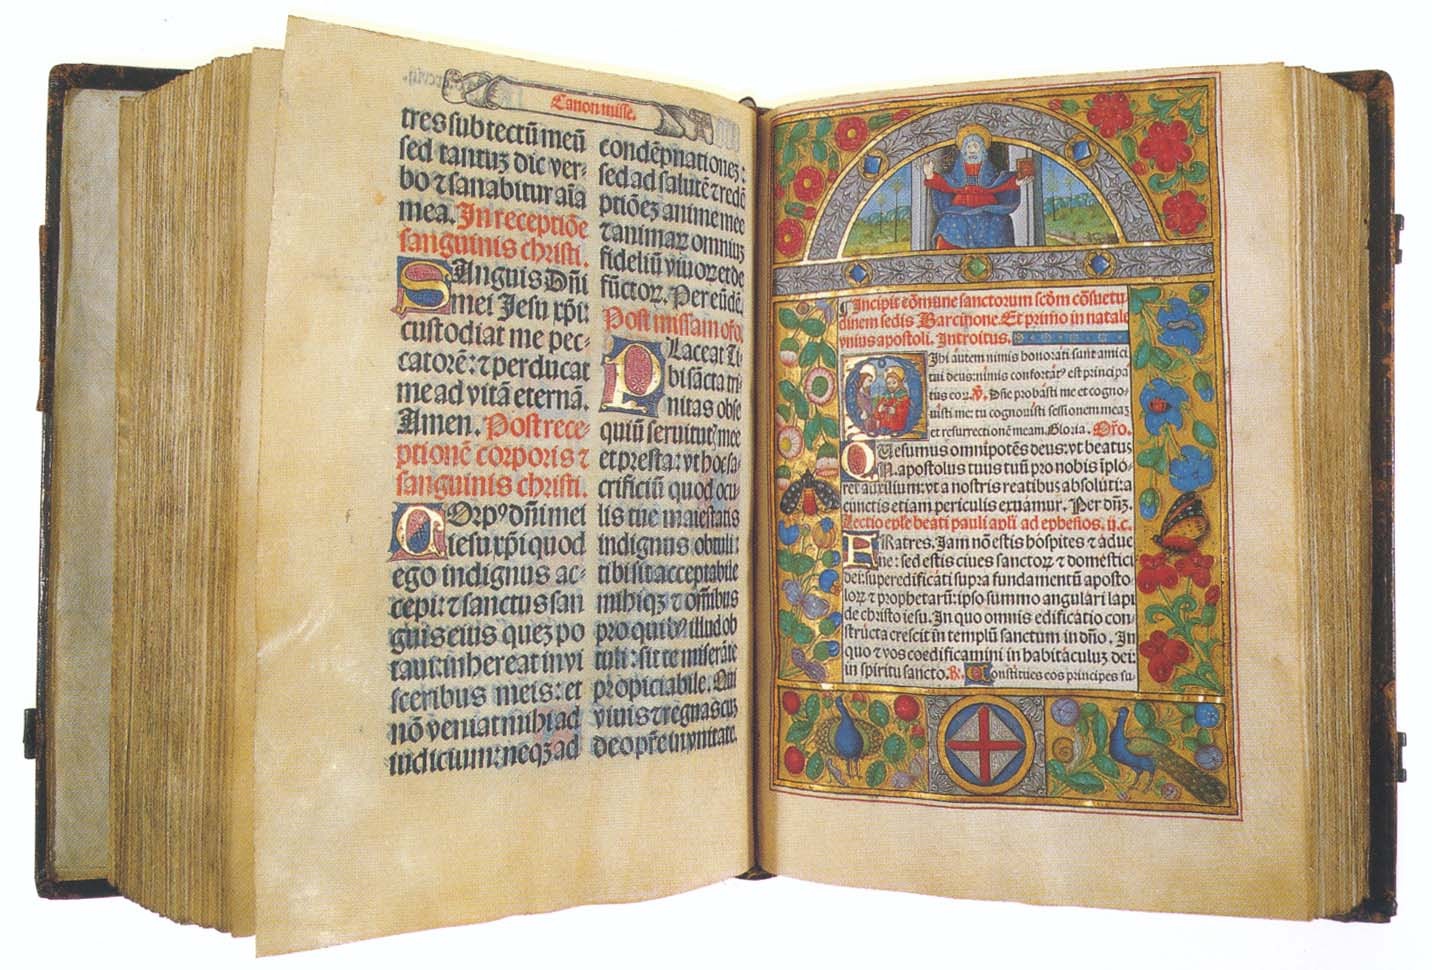 Canon misse.
tres sub tectū meū
sed tantuz dic ver-
bo ⁊ sanabitur aīa
mea. In receptiōe
sanguinis christi.
SAnguis Dñi
mei Jesu xpi:
custodiat me pec-
catorē: ⁊ perducat
me ad vitā eternā.
Amen. Post rece-
ptionē corporis ⁊
sanguinis christi.
COrpꝰ dñi mei
iesu xpi quod
ego indignus ac-
cepi: ⁊ sanctus san
guis eius quez po
taui: inhereat in vi
sceribus meis: et
nō veniat mihi ad
iudicium: neqz ad
condēpnationez:
sed ad salutē ⁊ redē
ptiōez anime mee
⁊ animaꝝ omniuz
fideliū viuoꝝ et de
fūctoꝝ. Per eūdē.
Post missam oro.
PLaceat Ti-
bi sācta tri-
nitas obse
quiū seruitutꝭ mee
et presta: vt hoc sa-
crificiū quod ocu
lis tue maiestatis
indignus obtuli:
tibi sit acceptabile
mihiqz ⁊ omībus
pro quibꝰ illud ob
tuli: sit te miserāte
propiciabile. Qui
viuis ⁊ regnas cuz
deo pr̄e in vnitate.
¶ Incipit cōmune sanctorum scḋm cōsuetu
dinem sedis Barcinone. Et primo in natale
vnius apostoli. Introitus.
MIhi autem nimis honorati sunt amici
tui deus: nimis confortatꝰ est principa
tus eoꝝ. ℣. Dñe probasti me et cogno-
uisti me: tu cognouisti sessionem meaz
et resurrectionē meam. Gloria. Oro.
QUesumus omnipotēs deus: vt beatus
N. apostolus tuus tuū pro nobis īplo-
ret auxilium: vt a nostris reatibus absoluti: a
cunctis etiam periculis exuamur. Per dñz.
Lectio eple beati pauli apli ad ephesios. ii. c.
FRatres. Jam nō estis hospites ⁊ adue
ne: sed estis ciues sanctoꝝ ⁊ domestici
dei: superedificati supra fundamentū aposto-
loꝝ ⁊ prophetarū: ipso summo angulari lapi
de christo iesu. In quo omnis edificatio con-
structa crescit in templū sanctum in dño. In
quo ⁊ vos coedificamini in habitaculuz dei:
in spiritu sancto. ℟. Constitues eos principes su-